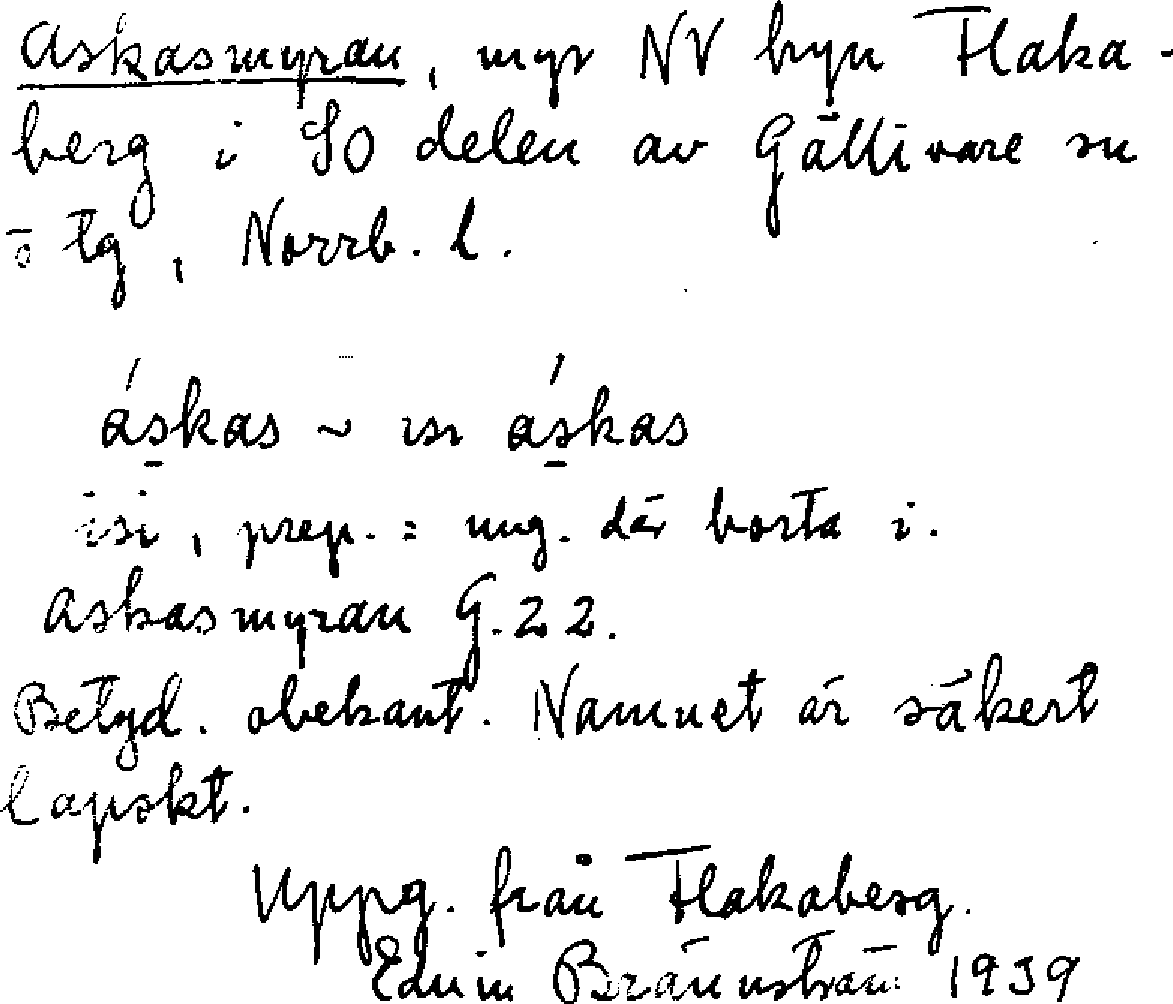 Askasmyran, myr NV byn Flaka-
berg i SO delen av Gällivare sn
o tg, Norrb. l.
á̱skas ~ isi á̱skas
isi, prep. = ung. där borta i.
Askasmyran G.22.
Betyd. obekant. Namnet är säkert
lapskt.
Uppg. från Flakaberg.
Edvin Brännström 1939